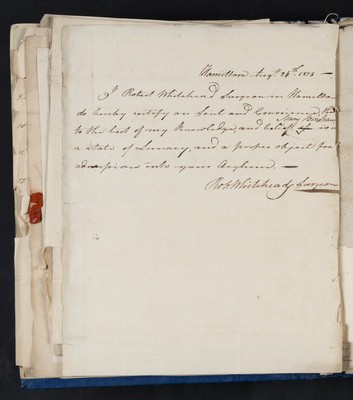 Hamilton Augt 24th 1825 —
I Robert Whitehead Surgeon in Hamilton
do hereby certify on Soul and Conscience that
Mary
to the best of my Knowledge and belief is in
a state of Lunacy, and a proper object for
admission into your Asylum. —
Robt Whitehead Surgeon